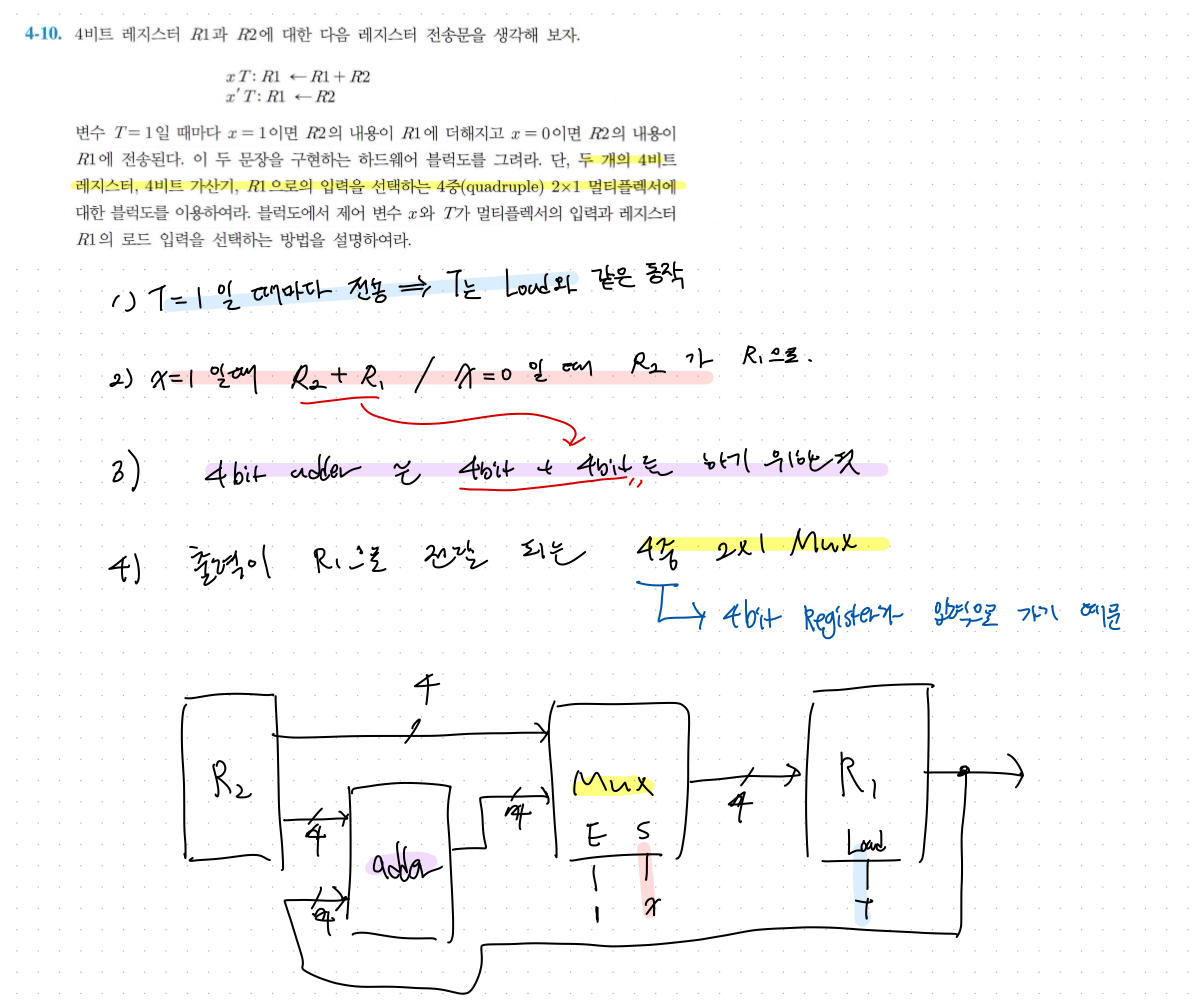 4-10. 4비트 레지스터 R1과 R2에 대한 다음 레지스터 전송문을 생각해 보자.
x T : R1 ← R1 + R2
x′ T : R1 ← R2
변수 T = 1일 때마다 x = 1이면 R2의 내용이 R1에 더해지고 x = 0이면 R2의 내용이
R1에 전송된다. 이 두 문장을 구현하는 하드웨어 블럭도를 그려라. 단, 두 개의 4비트
레지스터, 4비트 가산기, R1으로의 입력을 선택하는 4중(quadruple) 2×1 멀티플렉서에
대한 블럭도를 이용하여라. 블럭도에서 제어 변수 x와 T가 멀티플렉서의 입력과 레지스터
R1의 로드 입력을 선택하는 방법을 설명하여라.
1) T=1 일 때마다 전송 ⇒ T는 Load와 같은 동작
2) x=1 일때 R2 + R1 / x=0 일 때 R2 가 R1으로.
3) 4bit adder 는 4bit + 4bit를 하기 위한 것
4) 출력이 R1으로 전달 되는 4중 2x1 Mux
→ 4bit Register가 입력으로 가기 때문
4
R2
Mux
R1
4
4
4
E S
Load
adder
4
1 x
T